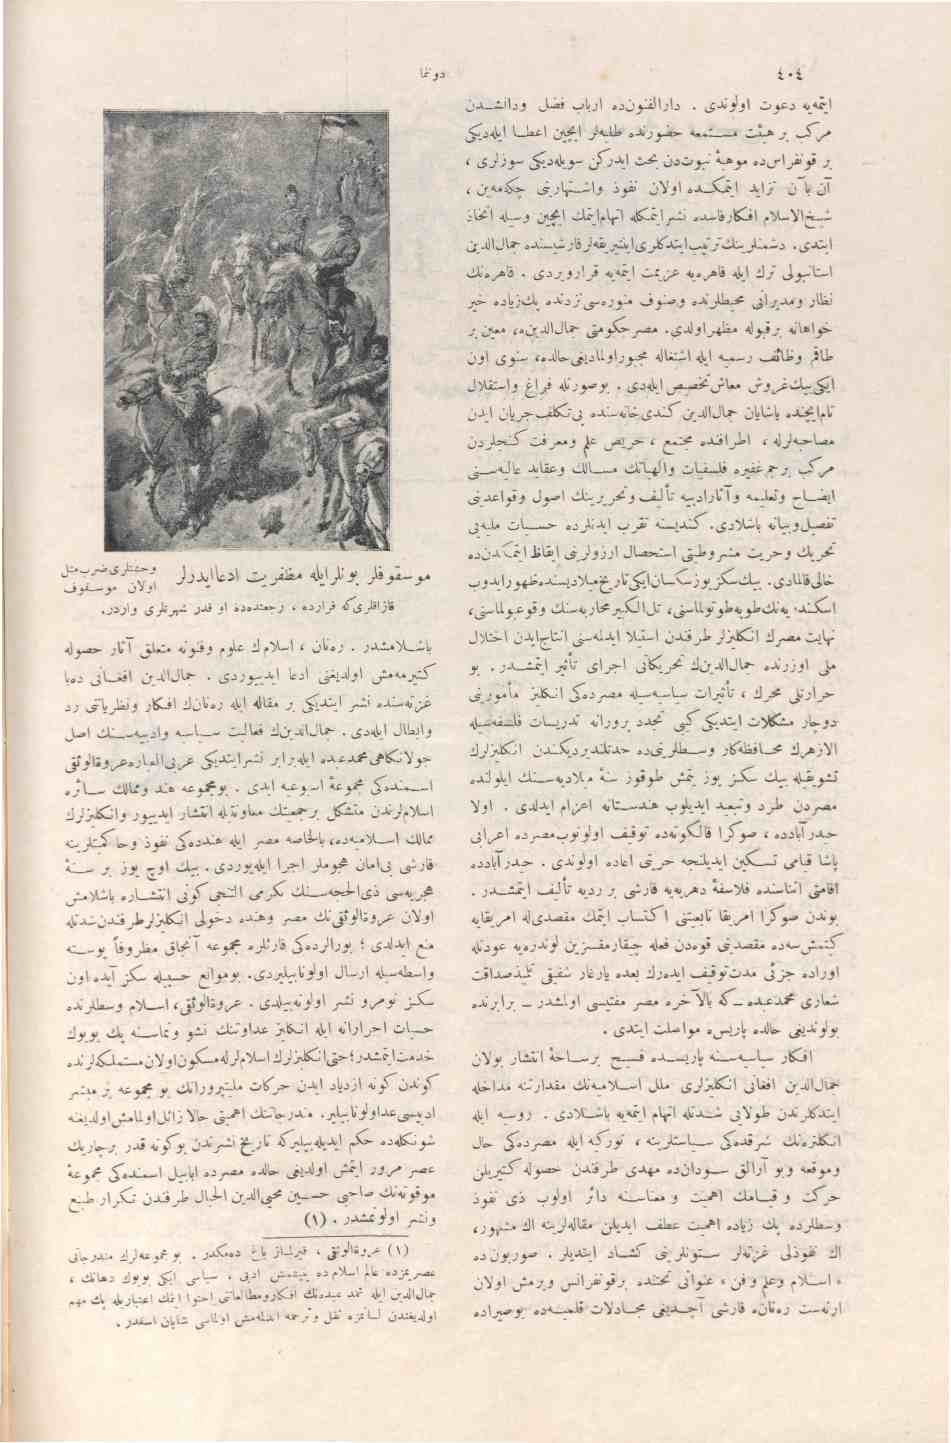 ٤٠٤
دونما
ایتمه‌یه دعوت اولوندی . دارالفنون‌ده ارباب فضل ودانشدن
مرکب بر هیئت مستمعه حضورنده طلبه‌لر ایچین اعطا ایله‌دیکی
بر قونفراس‌ده موهبهٔ نبوت‌دن بحث ایدرکن سویله‌دیکی سوزلری ،
آن بآن تزاید ایتمکده اولان نفوذ واشتهارینی چکه‌مه‌ین ،
شیخ‌الاسلام افکار فاسده نشر ایتمکله اتهام ایتمك ایچین وسیله اتخاذ
ایتدی. دشمنلرینك ترتیب ایتدکلری انتریقه‌لر قارشیسنده جمال‌الدین
استانبولی ترك ایله قاهره‌یه عزیمت ایتمه‌یه قرار ویردی . قاهره‌نك
نظار ومدیرانی محیطلرنده وصنوف منوره‌سی نزدنده پك زیاده خیر
خواهانه بر قبوله مظهر اولدی. مصر حکومتی جمال‌الدین‌ه، معین بر
طاقم وظائف رسمیه ایله اشتغاله مجبور اولمادیغی حالده، سنوی اون
ایکی بیك غروش معاش تخصیص ایله‌دی . بو صورتله فراغ واستقلال
تام ایچنده یاشایان جمال‌الدین کندی خانه‌سنده بی تکلف جریان ایدن
مصاحبه‌لرله ، اطرافنده مجتمع ، حریص علم ومعرفت کنجلردن
مرکب بر جم غفیره فلسفیات والهیاتك مسالك وعقاید عالیه‌سنی
ایضاح وتعلیمه وآثار ادبیه تألیف وتحریرینك اصول وقواعدینی
تفصیل وبیانه باشلادی. کندیسنه تقرب ایدنلرده حسیات ملیه‌یی
تحریك وحریت مشروطیتی استحصال آرزولرینی ایقاظ ایتمکدن‌ده
خالی قالمادی. بیك سکز یوز سکسان ایکی تاریخ میلادیسنده ظهور ایدوب
اسکندریه‌نك طوپه طوتولماسنی، تل‌الکبیر محاربه‌سنك وقوعبولماسنی،
نهایت مصرك انکلیزلر طرفندن استیلا ایدلمه‌سنی انتاج ایدن اختلال
ملی اوزرنده جمال‌الدین‌ك تحریکاتی اجرای تأثیر ایتمشدر . بو
حرارتلی محرك ، تأثیرات سیاسیه‌سیله مصرده‌کی انکلیز مأمورینی
دوچار مشکلات ایتدیکی کبی تجدد پرورانه تدریسات فلسفه‌سیله
الازهرك محافظه‌کار وسطلرینی‌ده حدتلندیردیکندن انکلیزلرك
تشویقیله بیك سکز یوز یتمش طوقوز سنهٔ میلادیه‌سنك ایلولنده
مصردن طرد وتبعید ایدیلوب هندستانه اعزام ایدلدی . اولا
حیدر آبادده ، صوکرا قالکوته‌ده توقیف اولونوب مصرده اعرابی
پاشا قیامی تسکین ایدیلنجه حریتی اعاده اولوندی . حیدر آبادده
اقامتی اثناسنده فلاسفهٔ دهریه‌یه قارشی بر ردیه تألیف ایتمشدر .
بوندن صوکرا امریقا تابعیتنی اکتساب ایتمك مقصدی‌له امریقایه
کیتمش‌سه‌ده مقصدینی قوه‌دن فعله چیقارمقسزین لوندره‌یه عودتله
اوراده جزئی مدت توقیف ایده‌رك بعده یارغار شفیقی تلمیذ صداقت
شعاری محمد عبده ـ که بالآخره مصر مفتیسی اولمشدر ـ برابرنده
بولوندیغی حالده پاریس‌ه مواصلت ایتدی .
افکار سیاسیه‌سنه پاریسده فسیح بر ساحهٔ انتشار بولان
جمال‌الدین افغانی انکلیزلری ملل اسلامیه‌نك مقدارتنه مداخله
ایتدکلرندن طولایی شدتله اتهام ایتمه‌یه باشلادی . روسیه ایله
انکلتره‌نك شرقده‌کی سیاستلرینه ، تورکیه ایله مصرده‌کی حال
وموقعه وبو آرالق سودان‌ده مهدی طرفندن حصوله کتیریلن
حرکت وقیامك اهمیت ومعناسنه دائر اولوب ذی نفوذ
وسطلرده پك زیاده اهمیت عطف ایدیلن مقاله‌لرینه اك مشهور،
اك نفوذلی غزته‌لر ستونلرینی کشاد ایتدیلر . صوربون‌ده
« اسلام وعلم وفن » عنوانی تحتنده بر قونفرانس ویرمش اولان
ارنه‌ست ره‌نان‌ه قارشی آچدیغی مجادلات قلمیه‌ده بو صیراده
موسقوفلر بونلر ایله مظفریت ادعا ایدرلر
وحشتلری ضرب مثل
اولان موسقوف
قازاقلری که فرارده ، رجعتده‌ده او قدر شهرتلری واردر.
باشلامشدر . ره‌نان ، اسلامك علوم وفنونه متعلق آثار حصوله
کتیرمه‌مش اولدیغنی ادعا ایدییوردی . جمال‌الدین افغانی ده‌با
غزته‌سنده نشر ایتدیکی بر مقاله ایله ره‌نان‌ك افکار ونظریاتنی رد
وابطال ایله‌دی. جمال‌الدین‌ك فعالیت سیاسیه وادبیه‌سنك اصل
جولانکاهی محمد عبده ایله برابر نشر ایتدیکی عربی‌العباره عروةالوثقی
اسمنده‌کی مجموعهٔ اسبوعیه ایدی . بو مجموعه هند وممالك سائره
اسلاملرندن متشکل بر جمعیتك معاونتیله انتشار ایدییور وانکلیزلرك
ممالك اسلامیه‌ده، بالخاصه مصر ایله هندده‌کی نفوذ وحاکمیتلرینه
قارشی بی‌امان هجوملر اجرا ایله‌یوردی. بیك اوچ یوز بر سنهٔ
هجریه‌سی ذی‌الحجه‌سنك یکرمی التنجی کونی انتشاره باشلامش
اولان عروةالوثقی‌نك مصر وهنده دخولی انکلیزلر طرفندن شدتله
منع ایدلدی ؛ بورالرده‌کی قارئلره مجموعه آنجاق مظروفاً پوسته
واسطه‌سیله ارسال اولونابیلیردی. بو موانع حسبیله سکز آیده اون
سکز نومرو نشر اولونه‌بیلدی . عروةالوثقی، اسلام وسطلرنده
حسیات احرارانه ایله انکلیز عداوتنك نشو ونماسنه پك بویوك
خدمت ایتمشدر؛ حتی انکلیزلرك اسلاملرله مسکون اولان مستملکه‌لرنده
کوندن کونه ازدیاد ایدن حرکات ملیتپرورانك بو مجموعه بر مبشر
ادبیسی عد اولونابیلیر. مندرجاتنك اهمیتی حالا زائل اولمامش اولدیغنه
شونکله‌ده حکم ایدیله‌بیلیرکه تاریخ نشرندن بوکونه قدر بر چاریك
عصر مرور ایتمش اولدیغی حالده مصرده ابابیل اسمنده‌کی مجموعهٔ
موقوته‌نك صاحبی حسین محیی‌الدین الحبال طرفندن تکرار طبع
ونشر اولونمشدر . (۱)
(۱) عروةالوثقی ، قیرلماز باغ دیمکدر . بو مجموعه‌لرك مندرجاتی
عصریمزده عالم اسلام‌ده یتیشمش ادبی ، سیاسی ایکی بویوك دهانك ،
جمال‌الدین ایله محمد عبده‌نك افکار ومطالعاتنی احتوا ایتمك اعتباریله پك مهم
اولدیغندن لسانمزه نقل وترجمه ایدلمه‌مش اولماسی شایان اسفدر .